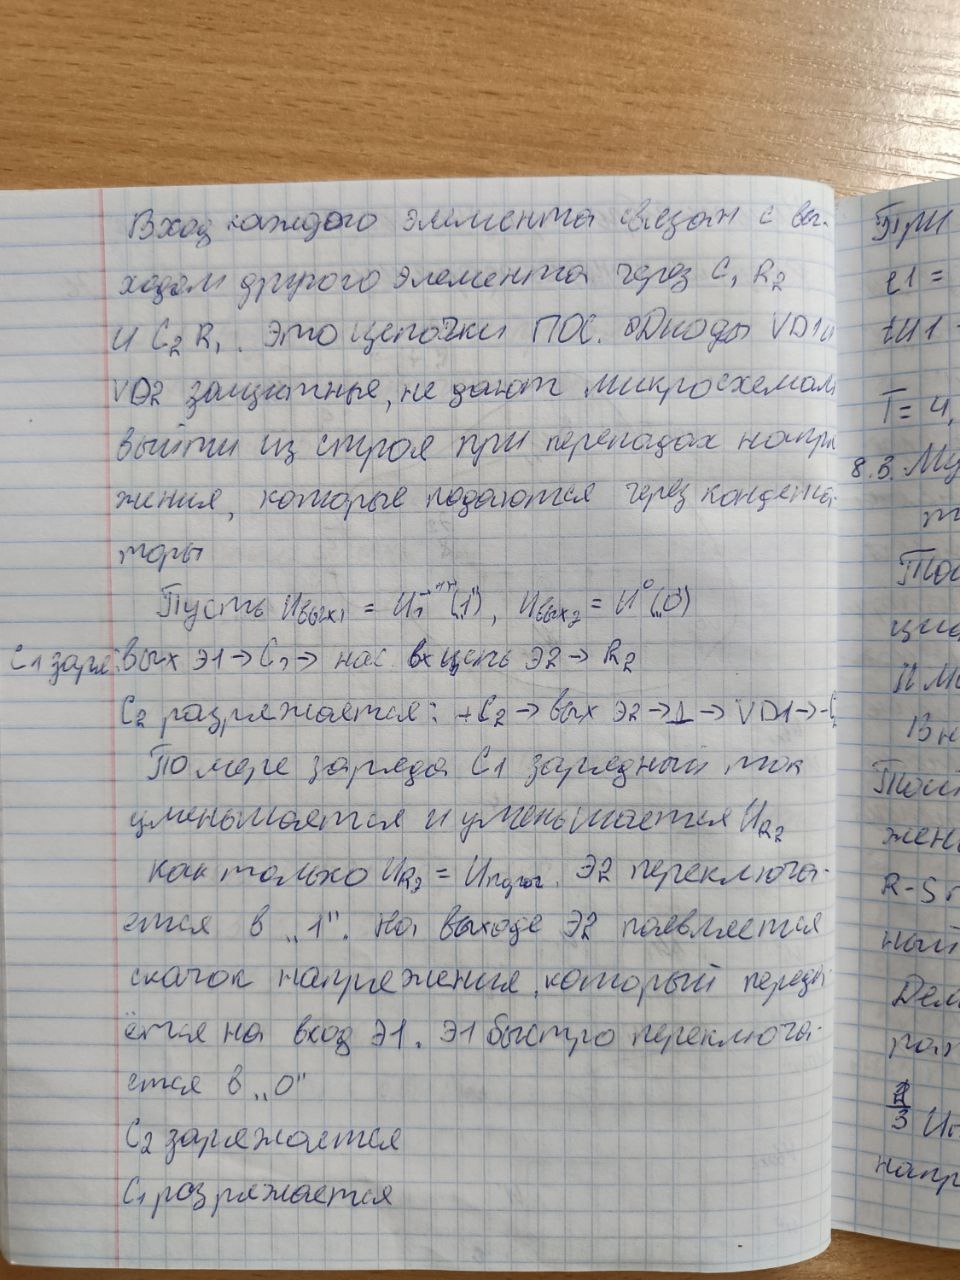 Вход каждого элемента связан с вы-
ходом другого элемента через C₁ R₂
и C₂ R₁. Это цепочки ПОС. Диоды VD1 и
VD2 защитные, не дают микросхемам
выйти из строя при перепадах напря
жения, которые подаются через конденса-
торы
Пусть Uвых₁ = U¹("1"), Uвых₂ = U⁰("0")
C1 заря: вых Э1 → C₁ → вх цепь Э2 → R₂
C₂ разряжается: +C₂ → вых Э2 → ⊥ → VD1 → -C₂
По мере заряда C1 зарядный ток
уменьшается и уменьшается U_R₂
как только U_R₂ = Uпорог. Э2 переключа-
ется в „1". На выходе Э2 появляется
скачок напряжения, который переда
ётся на вход Э1. Э1 быстро переключа-
ется в „0"
C₂ заряжается
C₁ разряжается
При
t1 =
tи1
T = 4,
8.3. Му
R-S
ный
напр